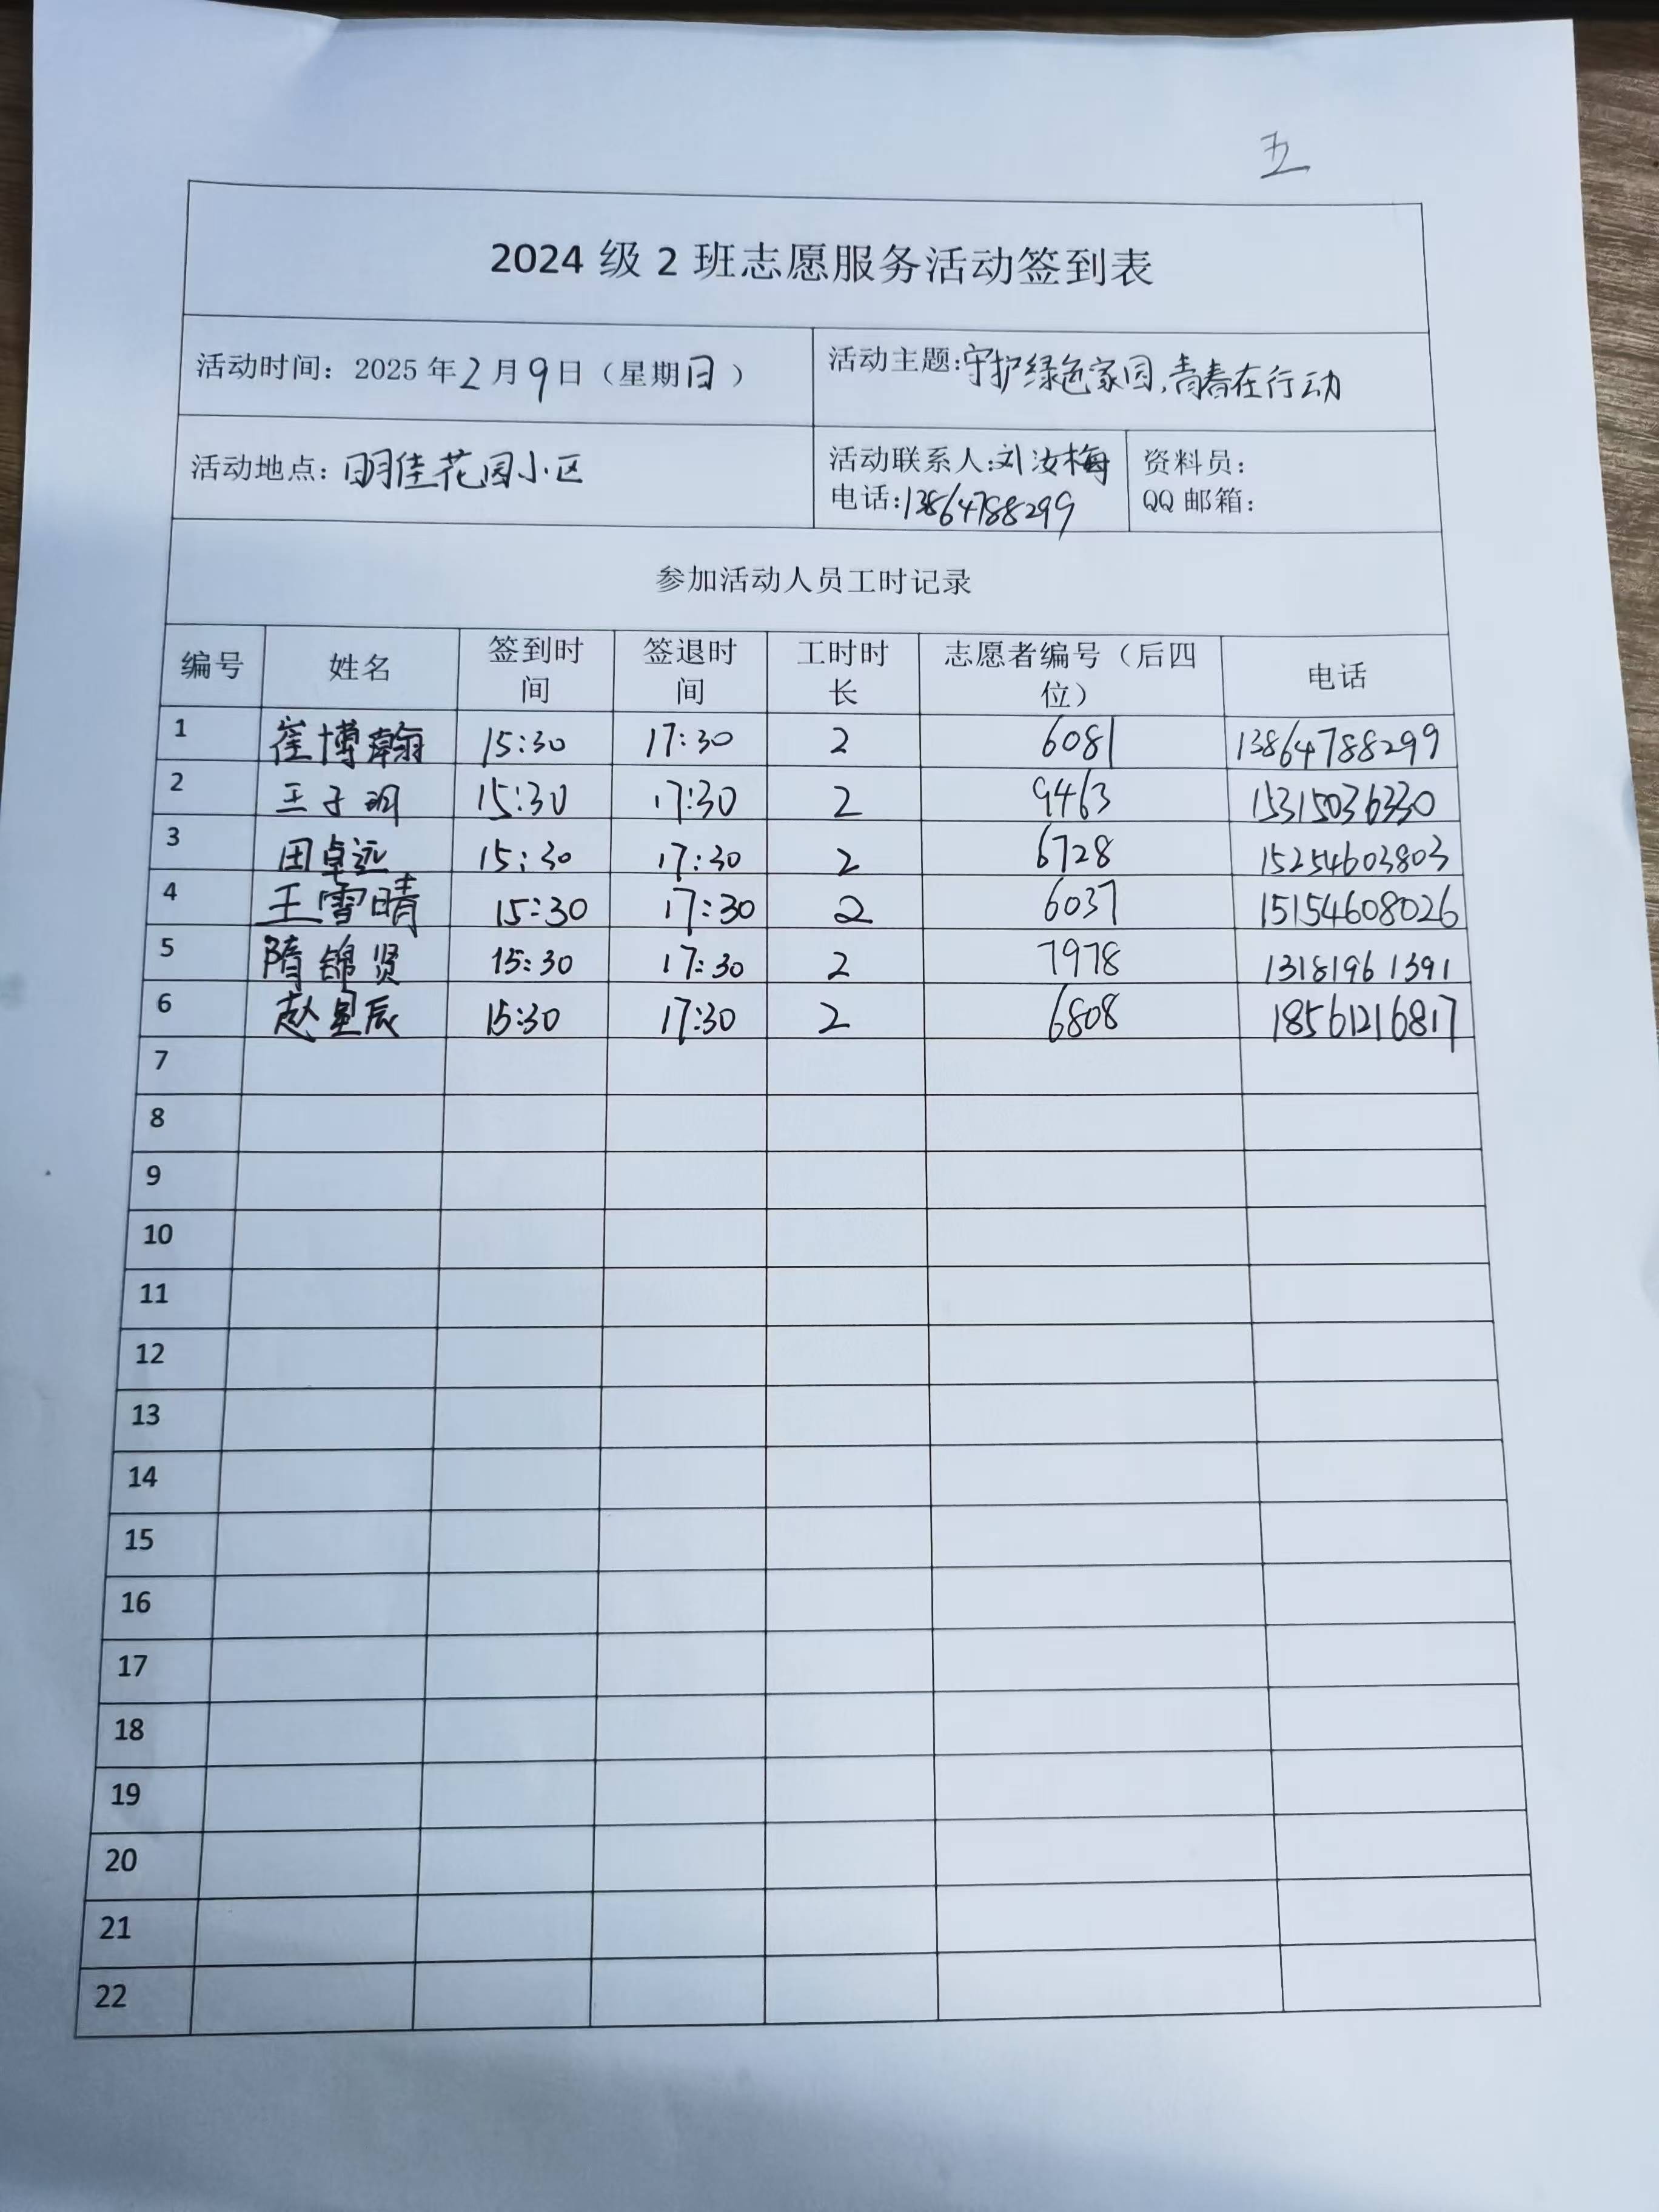 五
2024 级 2 班志愿服务活动签到表
活动时间：2025 年2月9日（星期日） 活动主题:守护绿色家园,青春在行动
活动地点：明佳花园小区 活动联系人:刘汝梅 资料员：
电话:13864788299 QQ 邮箱：
参加活动人员工时记录
编号 姓名 签到时间 签退时间 工时时长 志愿者编号（后四位） 电话
1 崔博翰 15:30 17:30 2 6081 13864788299
2 王子玥 15:30 17:30 2 9463 15315036330
3 田卓远 15:30 17:30 2 6728 15254603803
4 王雪晴 15:30 17:30 2 6037 15154608026
5 隋锦贤 15:30 17:30 2 7978 13181961391
6 赵星辰 15:30 17:30 2 6808 18561216817
7
8
9
10
11
12
13
14
15
16
17
18
19
20
21
22